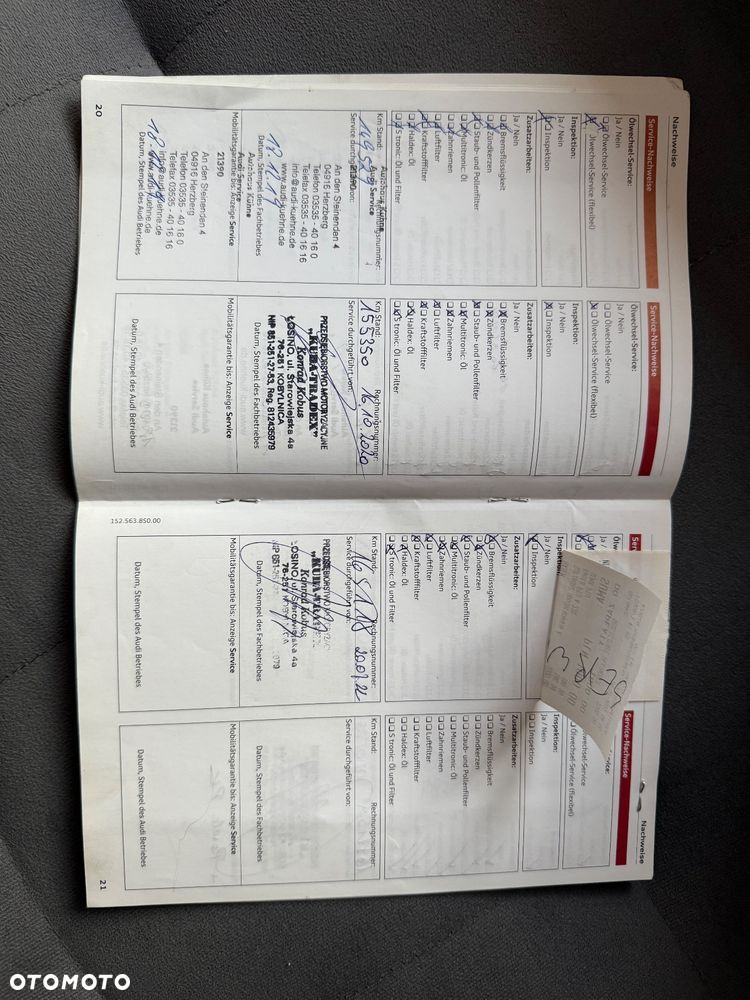 Nachweise
Service-Nachweise
Ölwechsel-Service:
Ja / Nein
Ölwechsel-Service
Ölwechsel-Service (flexibel)
Inspektion:
Ja / Nein
Inspektion
Zusatzarbeiten:
Ja / Nein
Bremsflüssigkeit
Zündkerzen
Staub- und Pollenfilter
Multitronic: Öl
Zahnriemen
Luftfilter
Kraftstofffilter
Haldex: Öl
S tronic: Öl und Filter
Km Stand:
Service durchgeführt von:
Autohaus Kühne
Audi Service
21390
An den Steinenden 4
04916 Herzberg
Telefon 03535 - 40 16 0
Telefax 03535 - 40 16 16
info@audi-kuehne.de
www.audi-kuehne.de
18.12.19
Datum, Stempel des Fachbetriebes
Mobilitätsgarantie bis: Anzeige Service
Autohaus Kühne
Audi Service
21390
An den Steinenden 4
04916 Herzberg
Telefon 03535 - 40 16 0
Telefax 03535 - 40 16 16
info@audi-kuehne.de
www.audi-kuehne.de
Datum, Stempel des Audi Betriebes
20
Service-Nachweise
Ölwechsel-Service:
Ja / Nein
Ölwechsel-Service
Ölwechsel-Service (flexibel)
Inspektion:
Ja / Nein
Inspektion
Zusatzarbeiten:
Ja / Nein
Bremsflüssigkeit
Zündkerzen
Staub- und Pollenfilter
Multitronic: Öl
Zahnriemen
Luftfilter
Kraftstofffilter
Haldex: Öl
S tronic: Öl und Filter
Km Stand:
Rechnungsnummer:
155350 16.10.2020
Service durchgeführt von:
PRZEDSIĘBIORSTWO MOTORYZACYJNE
„KUBA-TRADEX"
Konrad Kobus
ŁOSINO, ul. Starowiejska 4a
76-251 KOBYLNICA
NIP 851-251-27-53, Reg. 812435979
Datum, Stempel des Fachbetriebes
Mobilitätsgarantie bis: Anzeige Service
Datum, Stempel des Audi Betriebes
152.563.850.00
Inspektion
Zusatzarbeiten:
Ja / Nein
Bremsflüssigkeit
Zündkerzen
Staub- und Pollenfilter
Multitronic: Öl
Zahnriemen
Luftfilter
Kraftstofffilter
Haldex: Öl
S tronic: Öl und Filter
Km Stand:
Rechnungsnummer:
Service durchgeführt von:
Konrad Kobus
ŁOSINO, ul. Starowiejska 4a
Datum, Stempel des Fachbetriebes
Mobilitätsgarantie bis: Anzeige Service
Datum, Stempel des Audi Betriebes
Nachweise
Service-Nachweise
Ölwechsel-Service
Ölwechsel-Service (flexibel)
Inspektion:
Ja / Nein
Inspektion
Zusatzarbeiten:
Ja / Nein
Bremsflüssigkeit
Zündkerzen
Staub- und Pollenfilter
Multitronic: Öl
Zahnriemen
Luftfilter
Kraftstofffilter
Haldex: Öl
S tronic: Öl und Filter
Km Stand:
Rechnungsnummer:
Service durchgeführt von:
Datum, Stempel des Fachbetriebes
Mobilitätsgarantie bis: Anzeige Service
Datum, Stempel des Audi Betriebes
21
OTOMOTO